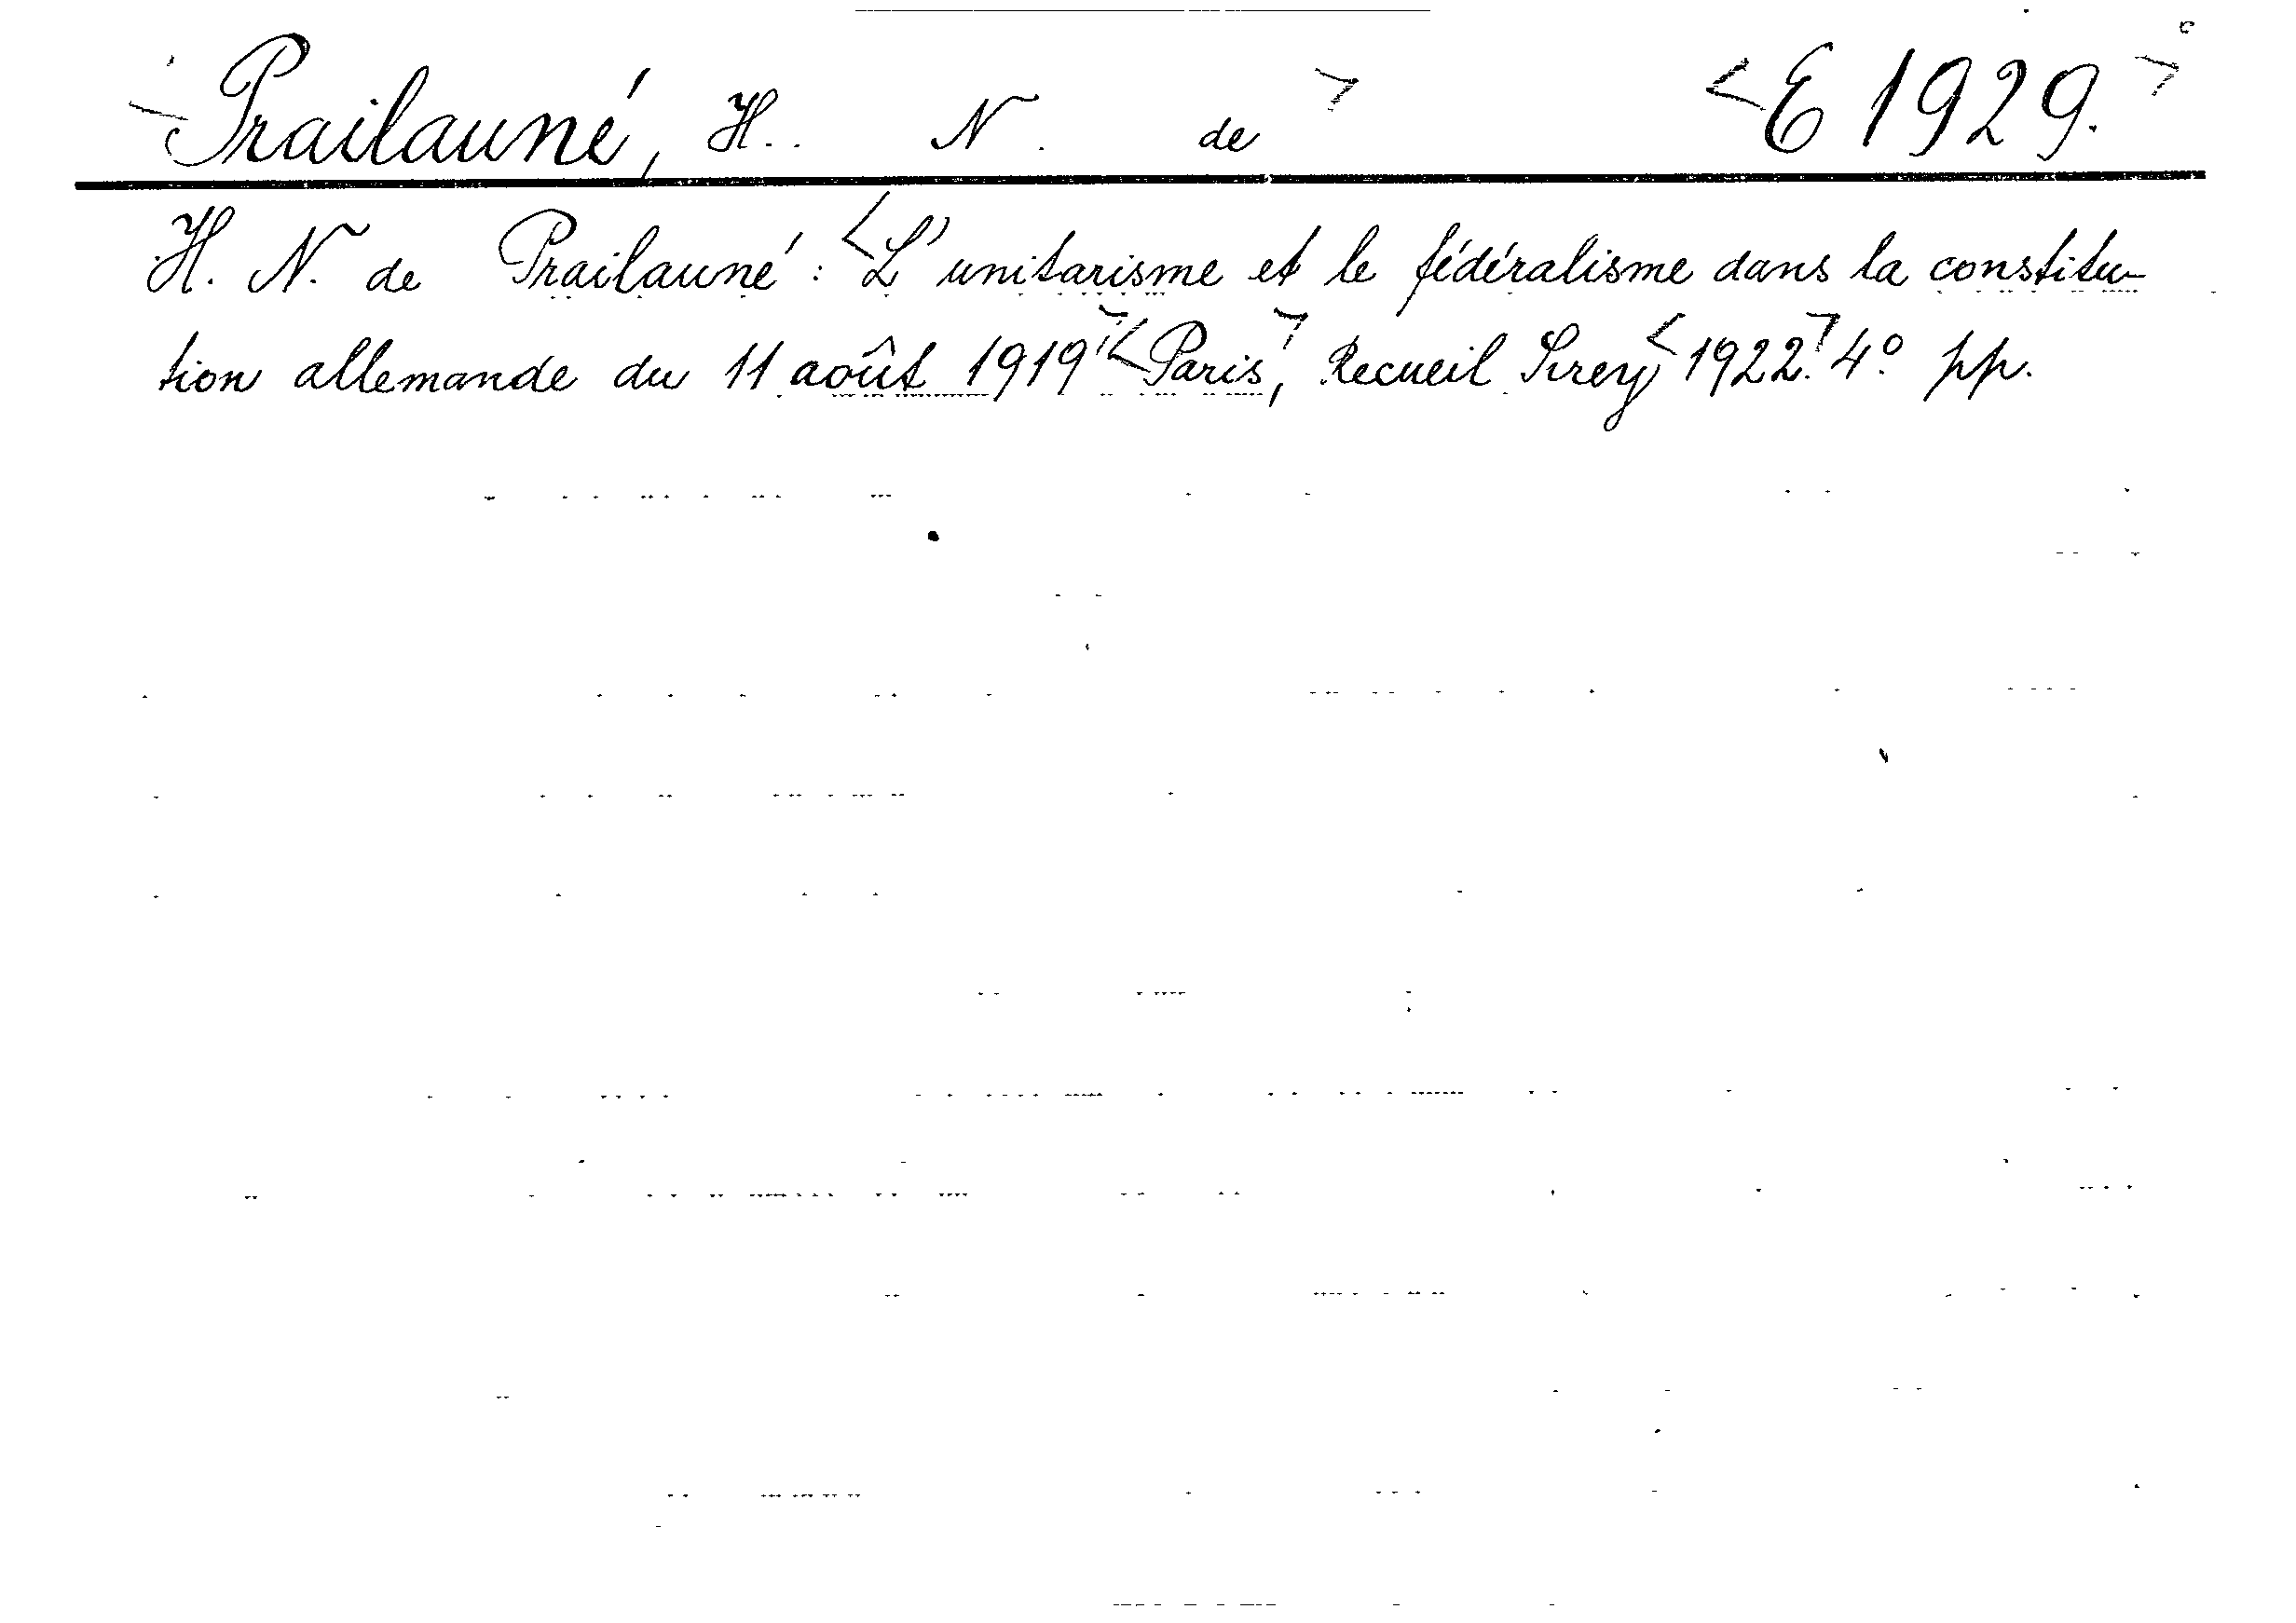 Prailauné, H.. N. de E 1929.
H. N. de Prailauné: L'unitarisme et le fédéralisme dans la constitu-
tion allemande du 11 août 1919. Paris, Recueil Sirey, 1922. 4° pp.